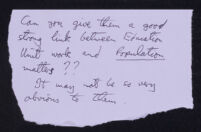 Can you give them a good
strong link between Education
Unit work and Population
matters ??
It may not be so very
obvious to them.